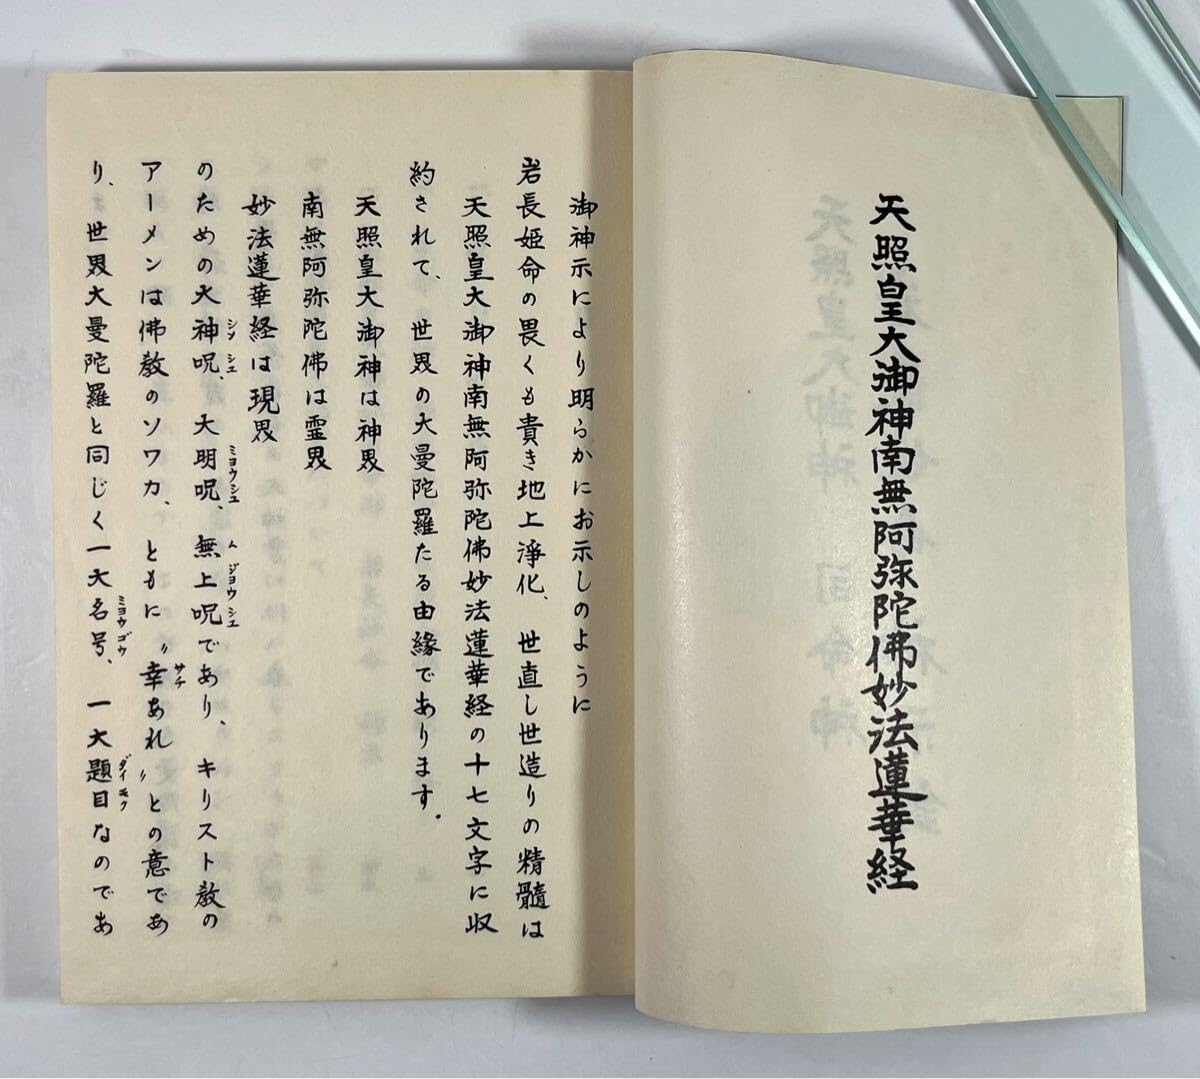 天照皇大御神南無阿弥陀佛妙法蓮華経
御神示により明らかにお示しのように
岩長姫命の畏くも貴き地上淨化、世直し世造りの精髓は
天照皇大御神南無阿弥陀佛妙法蓮華経の十七文字に収
約されて、世界の大曼陀羅たる由縁であります。
天照皇大御神は神界
南無阿弥陀佛は霊界
妙法蓮華経は現界
のための大神呪、大明呪、無上呪であり、キリスト教の
アーメンは佛教のソワカ、ともに〃幸あれ〃との意であ
り、世界大曼陀羅と同じく一大名号、一大題目なのであ